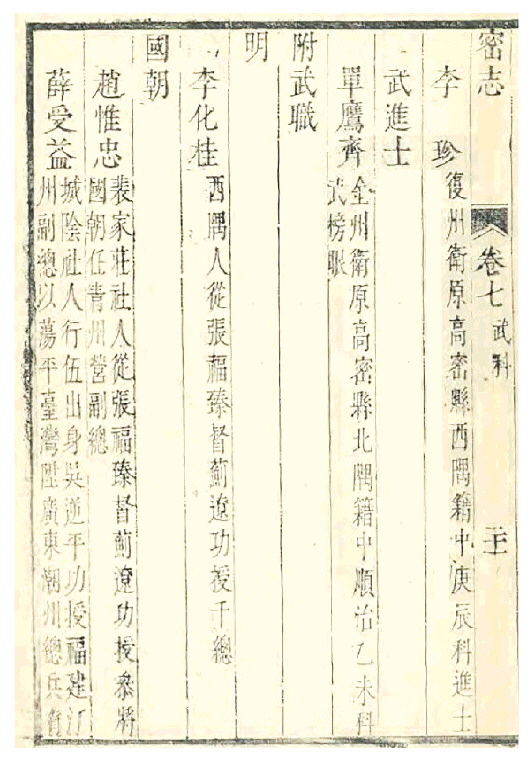 密志 卷七 武科
李 珍 復州衛原高密縣西隅籍中庚辰科進士
武進士
單鷹齊 金州衛原高密縣北隅籍中順治乙未科
武榜眼
附武職
明
李化桂 西隅人從張福臻督薊遼功授千總
國朝
趙惟忠 裴家莊社人從張福臻督薊遼功授叅將
國朝任青州營副總
薛受益 城陰社人行伍出身吳逆平功授福建汀
州副總以蕩平臺灣陞廣東潮州總兵官